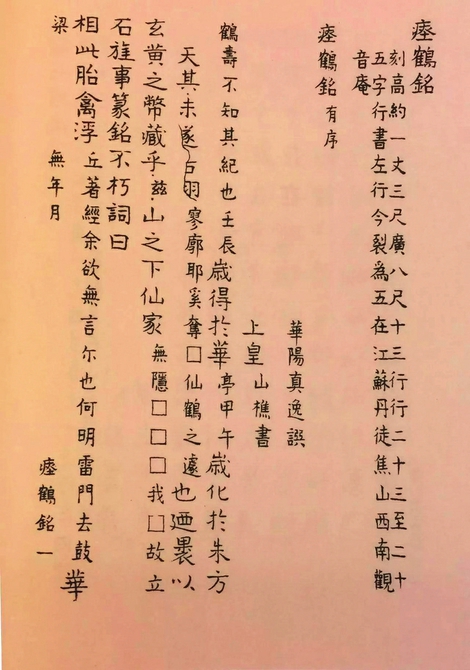 瘞鶴銘
刻高約一丈三尺廣八尺十三行行二十三至二十
五字行書左行今裂為五在江蘇丹徒焦山西南觀
音庵
瘞鶴銘有序
華陽真逸譔
上皇山樵書
鶴壽不知其紀也壬辰歲得於華亭甲午歲化於朱方
天其未遂吾翔寥廓耶奚奪□仙鶴之遽也廼裹以
玄黃之幣藏乎茲山之下仙家無隱□□□我□故立
石旌事篆銘不朽詞曰
相此胎禽浮丘著經余欲無言尔也何明雷門去鼓華
梁
無年月
瘞鶴銘一